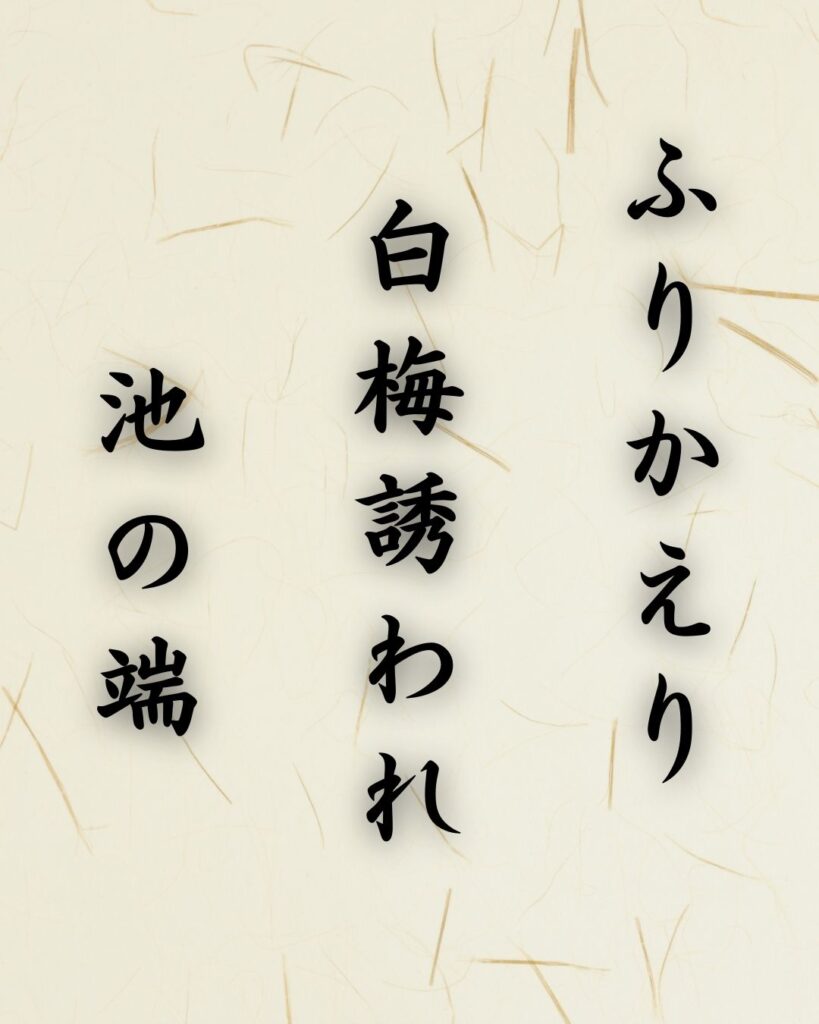 ふりかえり
白梅誘われ
池の端